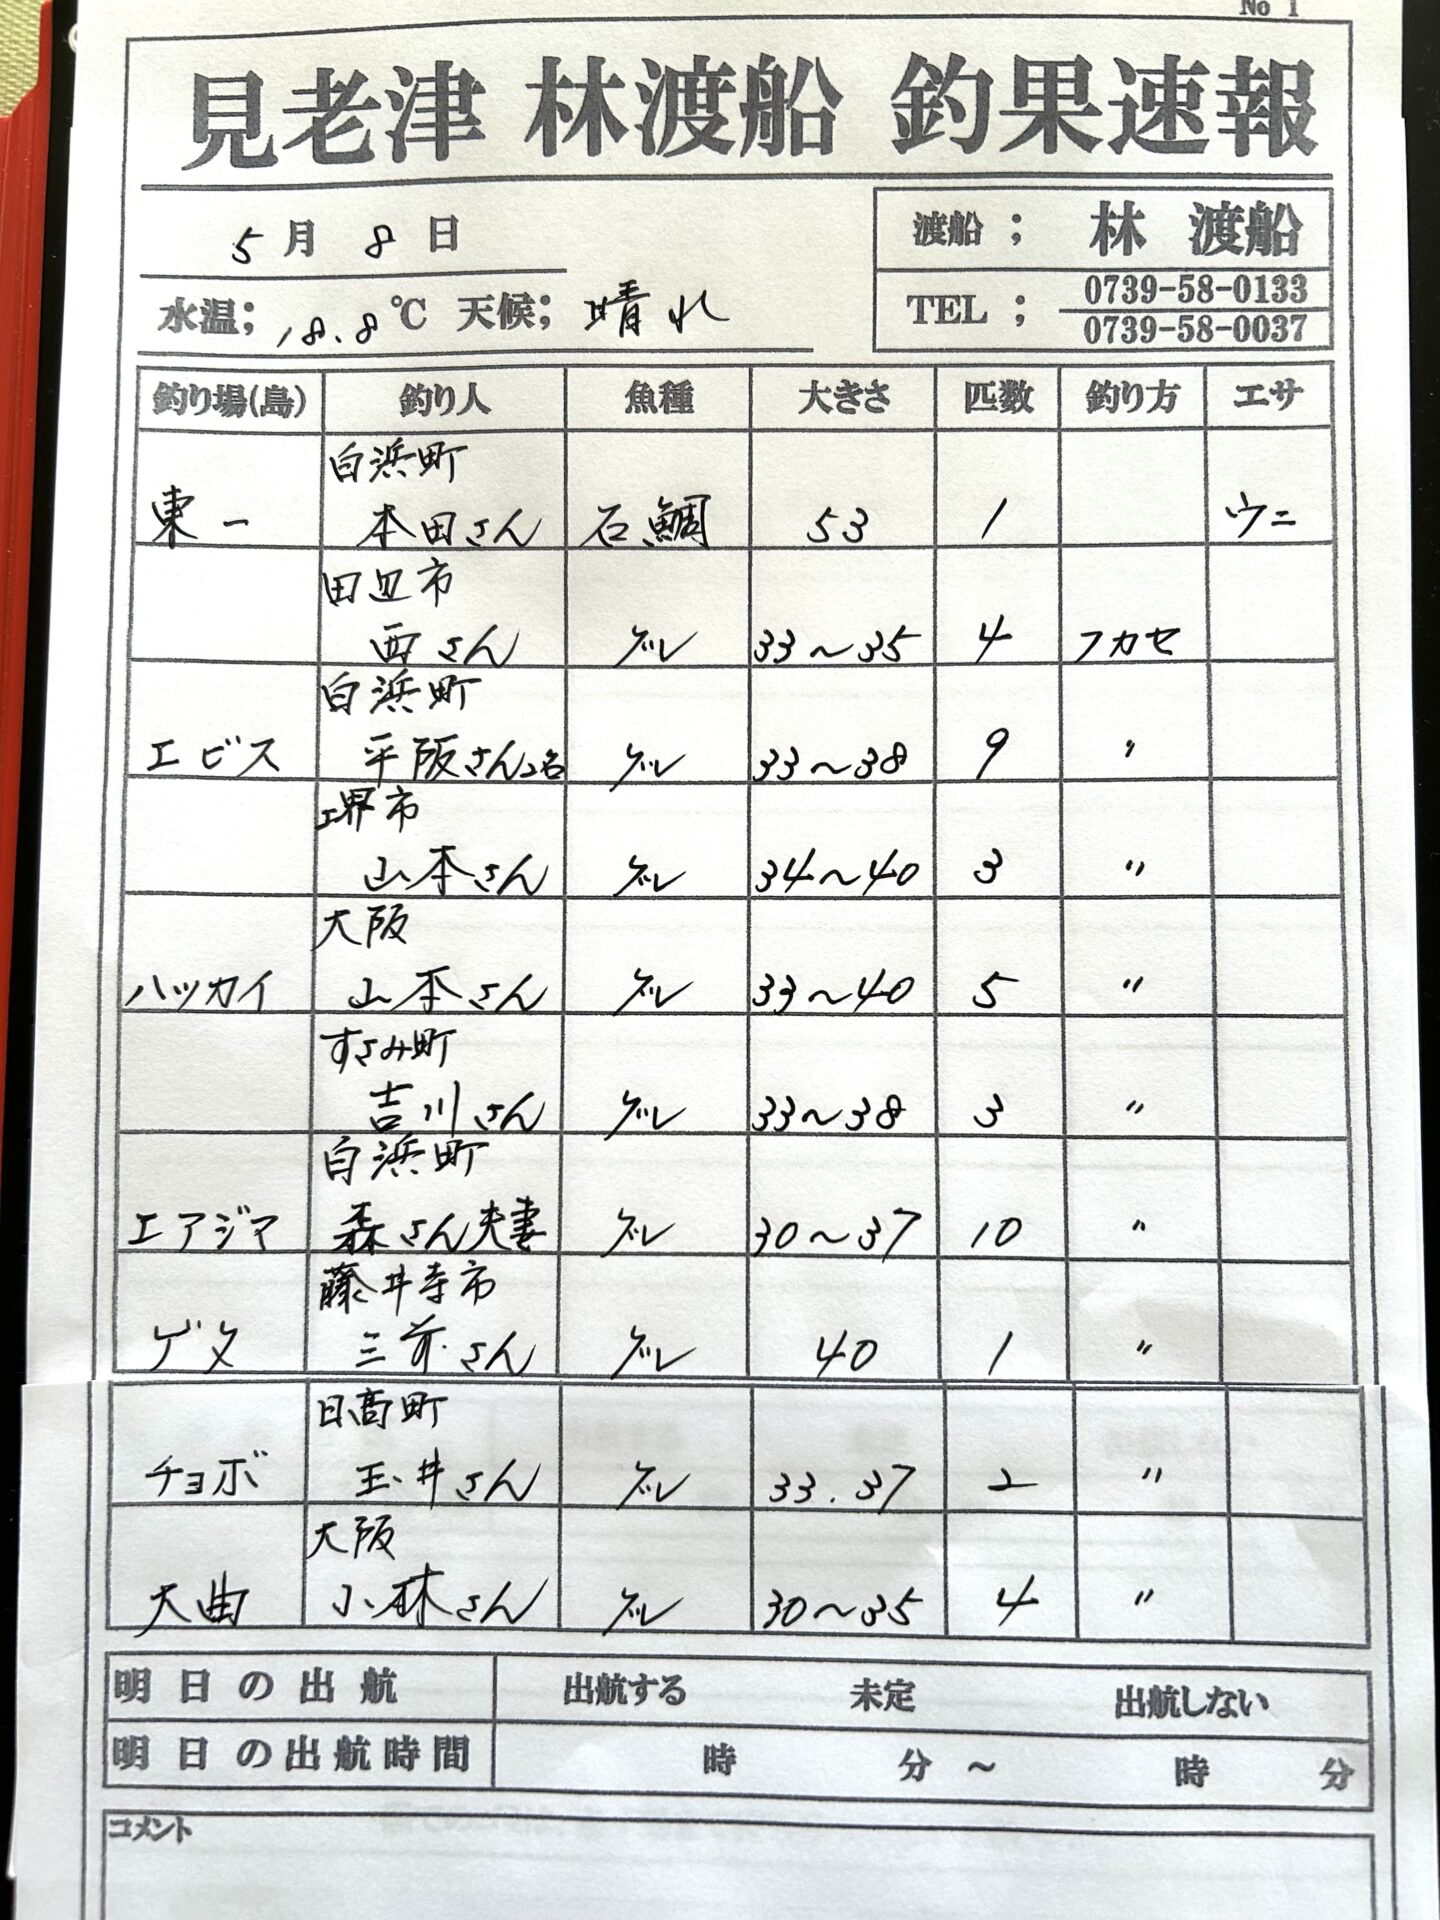 No 1
見老津 林渡船 釣果速報
5月 8日
渡船 ; 林 渡船
水温; 18.8℃ 天候; 晴れ
TEL ; 0739-58-0133
0739-58-0037
釣り場(島) 釣り人 魚種 大きさ 匹数 釣り方 エサ
白浜町
東一 本田さん 石鯛 53 1 ウニ
田辺市
西さん グレ 33〜35 4 フカセ
白浜町
エビス 平阪さん2名 グレ 33〜38 9 〃
堺市
山本さん グレ 34〜40 3 〃
大阪
ハッカイ 山本さん グレ 33〜40 5 〃
すさみ町
吉川さん グレ 33〜38 3 〃
白浜町
エアジマ 森さん夫妻 グレ 30〜37 10 〃
藤井寺市
ゲタ 三前さん グレ 40 1 〃
日高町
チョボ 玉井さん グレ 33.37 2 〃
大阪
大曲 小林さん グレ 30〜35 4 〃
明日の出航 出航する 未定 出航しない
明日の出航時間 時 分 ~ 時 分
コメント